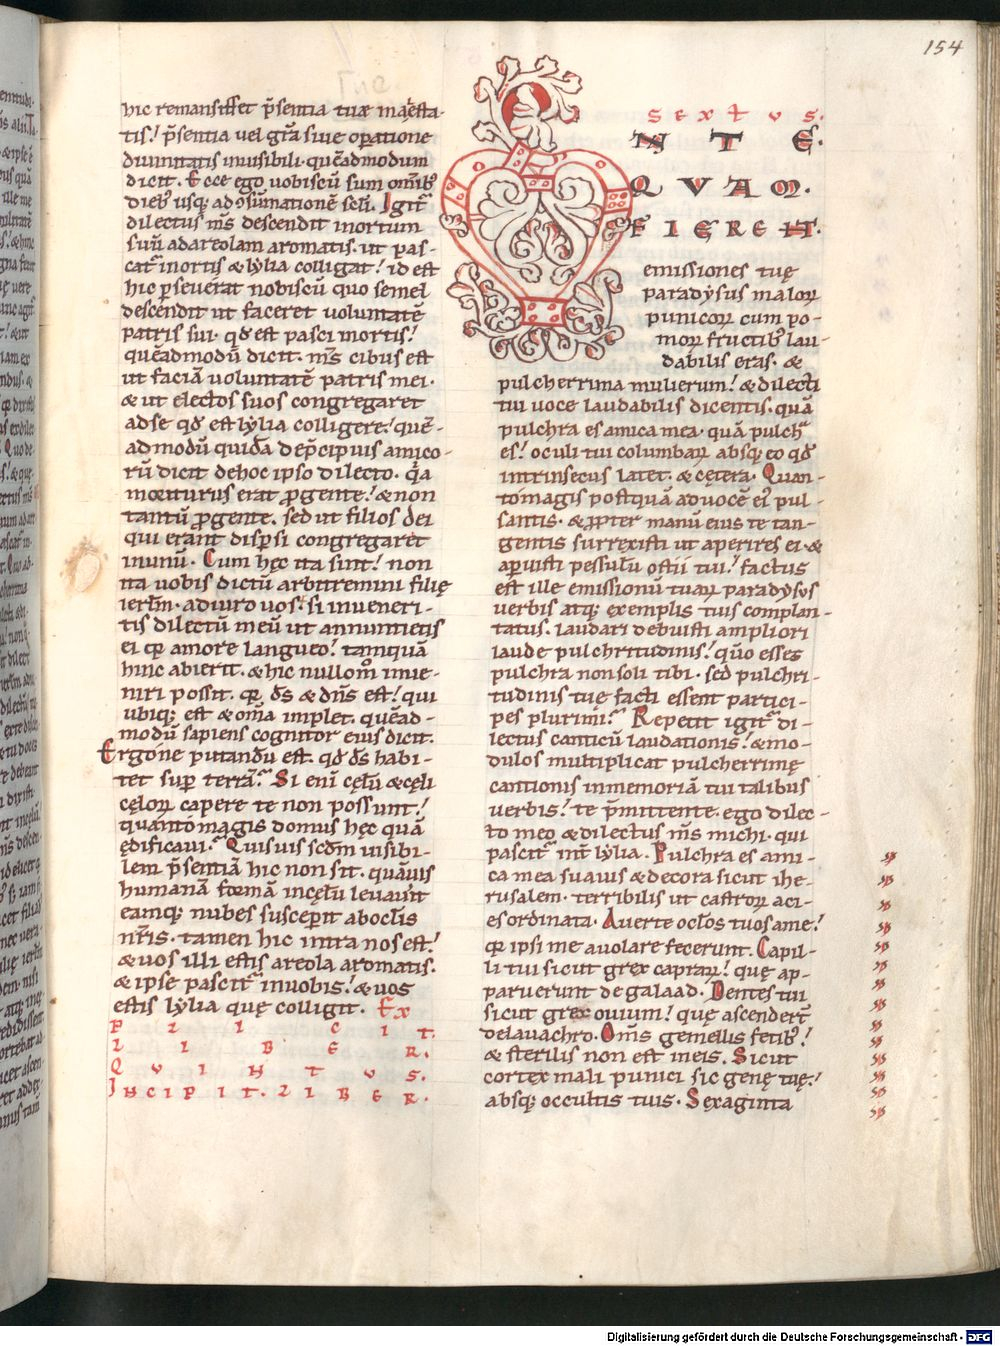 154
hic remansisset p̄sentia tuæ maiesta-
tis! p̄sentia uel gr̄a siue operatione
diuinitatis inuisibili. quēadmodum
dicit. Ecce ego uobiscū sum omīb;
dieb; usq; ad ꝯsūmationē scl̄i. Igit̄
dilectus m̄s descendit inortum
suū adareolam aromatis. ut pas-
cat̄ inortis & lẏlia colligat! id est
hic perseuerat nobiscū quo semel
descendit ut faceret uoluntatē
patris sui. qđ est pasci inortis!
quēadmodū dicit. m̄s cibus est
ut faciā uoluntatē patris mei.
& ut electos suos congregaret
adse qđ est lẏlia colligere! quē-
admodū quidā dep̄cipuis amico-
rū dicit dehoc ipso dilecto. q̄a
moriturus erat ꝓgente! & non
tantū ꝓgente. sed ut filios dei
qui erant dispersi congregaret
inunū. Cum hęc ita sint! non
ita uobis dictū arbitremini filię
ierl̄m. adiuro uos! si inueneri-
tis dilectū meū ut annuntietis
ei qꝛ amore langueo! tamquā
hinc abierit. & hic nullom̊ inue-
niri possit. qꝛ d̄s & dn̄s est! qui
ubiq; est & om̄ia implet. quēad-
modū sapiens cognitor eius dicit.
Ergone putandū est. qđ d̄s habi-
tet super terrā? Si eni cęlū & cęli
cęlorꝝ capere te non possunt!
quantomagis domus hęc quā
ędificaui? Quisuis scđm uisibi-
lem p̄sentiā hic non sit. quāuis
humanā formā incęlū leuauit
eamq; nubes suscepit aboclis
nr̄is. tamen hic intra nos est!
& uos illi estis areola aromatis.
& ipse pascit̄ inuobis! & uos
estis lẏlia quę colligit. Ex
PLICIT
LIBER.
QVINTVS.
INCIPIT. LIBER.
SEXTVS.
NTE
QVAM.
FIERENT.
emissiones tuę
paradẏsus malorꝝ
punicorꝝ cum po-
morꝝ fructib; lau-
dabilis eras. &
pulcherrima mulierum! & dilecti
tui uoce laudabilis dicentis. quā
pulchra es amica mea. quā pulchra
es! oculi tui columbarꝝ absq; eo qđ
intrinsecus latet. & cętera. Quan-
tomagis postquā aduocē ei; pul-
santis. & ꝓpter manū eius te tan-
gentis surrexisti ut aperires ei. &
aperuisti pessulū ostii tui! factus
est ille emissionū tuarꝝ paradẏsus
uerbis atq; exemplis tuis complan-
tatus. laudari debuisti ampliori
laude pulchritudinis! quo esses
pulchra nonsoli tibi. sed pulchri-
tudinis tuę facti essent partici-
pes plurimi? Repetit igit̄ di-
lectus canticū laudationis! & mo-
dulos multiplicat pulcherrimę
cantionis inmemoriā tui talibus
uerbis! te p̄mittente. ego dilec-
to meo & dilectus m̄s michi. qui
pascit̄ int̄ lẏlia. Pulchra es ami-
ca mea suauis & decora sicut ihe-
rusalem. terribilis ut castrorꝝ aci-
es ordinata. Auerte oclos tuos ame!
qꝛ ipsi me auolare fecerunt. Capil-
li tui sicut grex caprarꝝ! quę ap-
paruerunt de galaad. Dentes tui
sicut grex ouium! quę ascendert̄
delauachro. Om̄s gemellis fetib;!
& sterilis non est ineis. Sicut
cortex mali punici sic genę tuę!
absq; occultis tuis. Sexaginta
Digitalisierung gefördert durch die Deutsche Forschungsgemeinschaft - DFG